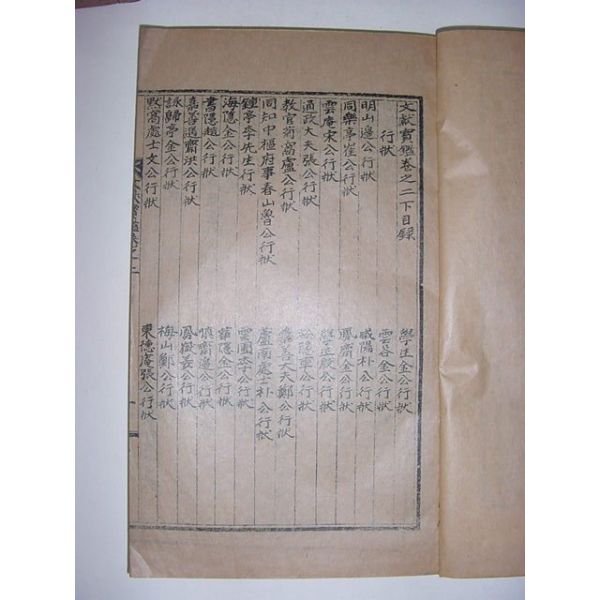 文献寶鑑卷之二下目錄
行狀
明山邊公行狀
同樂亭崔公行狀
雲庵宋公行狀
通政大夫張公行狀
教官菊窩盧公行狀
同知中樞府事春山魯公行狀
鍾亭李先生行狀
海隱金公行狀
書隱趙公行狀
嘉善邁齋洪公行狀
詠歸亭金公行狀
默窩處士文公行狀
金公行狀
雲谷金公行狀
咸陽朴公行狀
鳳齋金公行狀
公行狀
松隱章公行狀
嘉善大夫鄭公行狀
蘆南處士朴公行狀
雲圃李公行狀
隱金公行狀
慎齋邊公行狀
鳳巖姜公行狀
梅山鄭公行狀
東德庵張公行狀